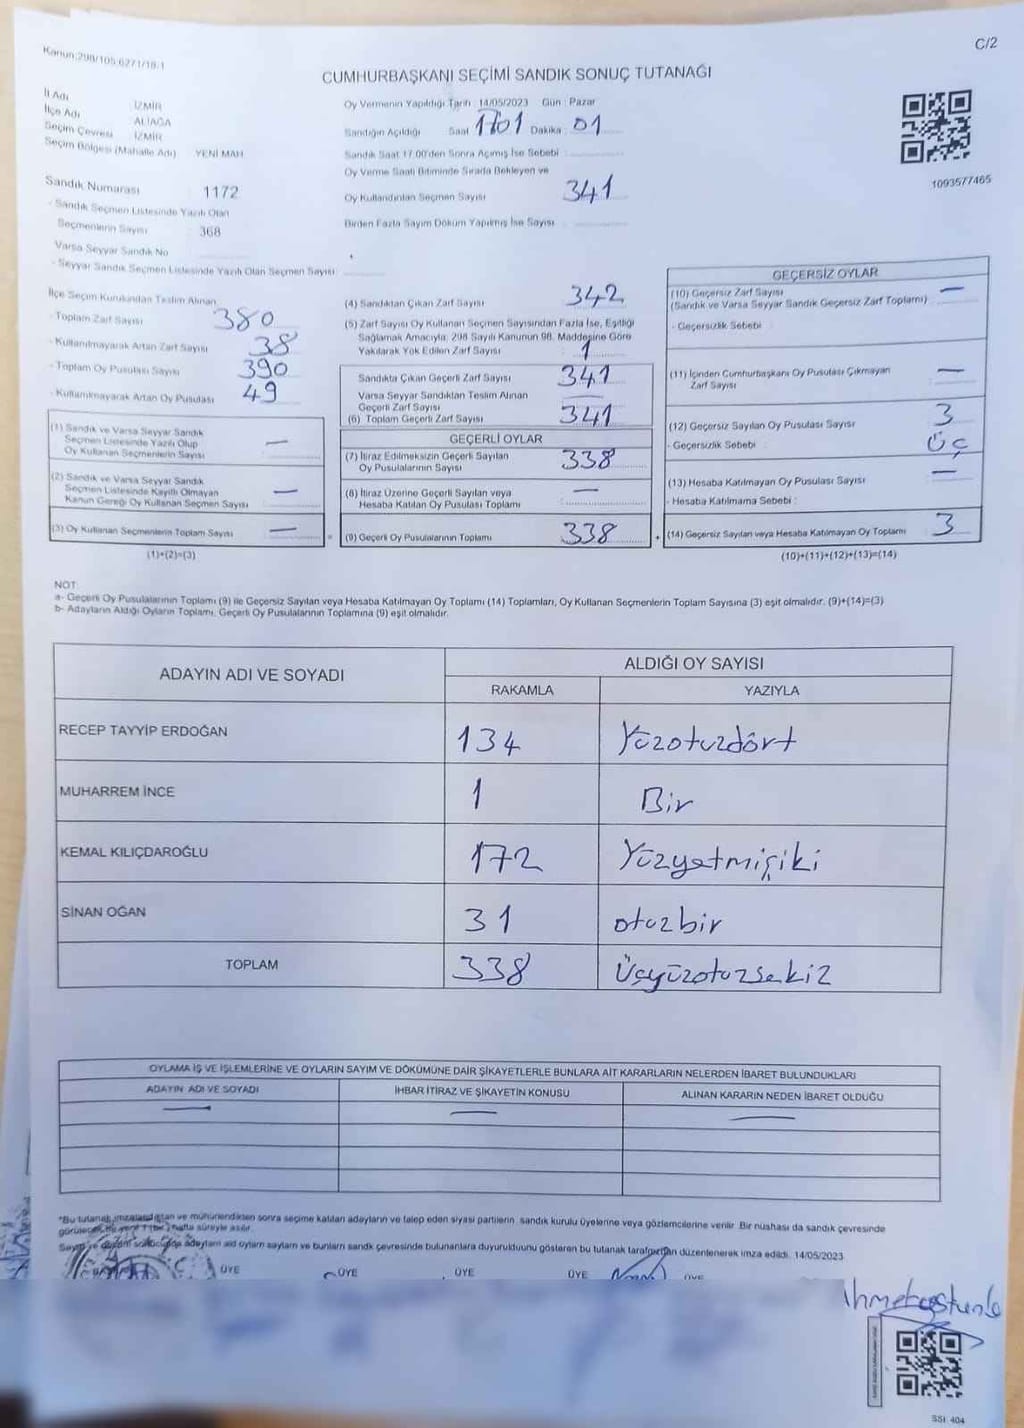 C/2
Kanun:298/105,6271/18.1
CUMHURBAŞKANI SEÇİMİ SANDIK SONUÇ TUTANAĞI
İl Adı İZMİR
İlçe Adı ALİAĞA
Seçim Çevresi İZMİR
Seçim Bölgesi (Mahalle Adı) YENİ MAH
Oy Vermenin Yapıldığı Tarih : 14/05/2023 Gün : Pazar
Sandığın Açıldığı Saat 1701 Dakika : 01
Sandık Saat 17:00'den Sonra Açılmış İse Sebebi :
Oy Verme Saati Bitiminde Sırada Bekleyen ve
Oy Kullandırılan Seçmen Sayısı 341
Birden Fazla Sayım Döküm Yapılmış İse Sayısı
1093577465
Sandık Numarası 1172
- Sandık Seçmen Listesinde Yazılı Olan
Seçmenlerin Sayısı 368
Varsa Seyyar Sandık No
- Seyyar Sandık Seçmen Listesinde Yazılı Olan Seçmen Sayısı
İlçe Seçim Kurulundan Teslim Alınan
- Toplam Zarf Sayısı 380
- Kullanılmayarak Artan Zarf Sayısı 38
- Toplam Oy Pusulası Sayısı 390
- Kullanılmayarak Artan Oy Pusulası 49
(1) Sandık ve Varsa Seyyar Sandık
Seçmen Listesinde Yazılı Olup
Oy Kullanan Seçmenlerin Sayısı —
(2) Sandık ve Varsa Seyyar Sandık
Seçmen Listesinde Kayıtlı Olmayan
Kanun Gereği Oy Kullanan Seçmen Sayısı —
(3) Oy Kullanan Seçmenlerin Toplam Sayısı —
(1)+(2)=(3)
(4) Sandıktan Çıkan Zarf Sayısı 342
(5) Zarf Sayısı Oy Kullanan Seçmen Sayısından Fazla İse, Eşitliği
Sağlamak Amacıyla; 298 Sayılı Kanunun 98. Maddesine Göre
Yakılarak Yok Edilen Zarf Sayısı 1
Sandıkta Çıkan Geçerli Zarf Sayısı 341
Varsa Seyyar Sandıktan Teslim Alınan
Geçerli Zarf Sayısı
(6) Toplam Geçerli Zarf Sayısı 341
GEÇERLİ OYLAR
(7) İtiraz Edilmeksizin Geçerli Sayılan
Oy Pusulalarının Sayısı 338
(8) İtiraz Üzerine Geçerli Sayılan veya
Hesaba Katılan Oy Pusulası Toplamı —
= (9) Geçerli Oy Pusulalarının Toplamı 338
GEÇERSİZ OYLAR
(10) Geçersiz Zarf Sayısı —
(Sandık ve Varsa Seyyar Sandık Geçersiz Zarf Toplamı)
- Geçersizlik Sebebi :
(11) İçinden Cumhurbaşkanı Oy Pusulası Çıkmayan
Zarf Sayısı —
(12) Geçersiz Sayılan Oy Pusulası Sayısı 3
- Geçersizlik Sebebi : üç
(13) Hesaba Katılmayan Oy Pusulası Sayısı —
- Hesaba Katılmama Sebebi :
+ (14) Geçersiz Sayılan veya Hesaba Katılmayan Oy Toplamı 3
(10)+(11)+(12)+(13)=(14)
NOT
a- Geçerli Oy Pusulalarının Toplamı (9) ile Geçersiz Sayılan veya Hesaba Katılmayan Oy Toplamı (14) Toplamları, Oy Kullanan Seçmenlerin Toplam Sayısına (3) eşit olmalıdır. (9)+(14)=(3)
b- Adayların Aldığı Oyların Toplamı, Geçerli Oy Pusulalarının Toplamına (9) eşit olmalıdır.
ADAYIN ADI VE SOYADI ALDIĞI OY SAYISI
RAKAMLA YAZIYLA
RECEP TAYYİP ERDOĞAN 134 Yüzotuzdört
MUHARREM İNCE 1 Bir
KEMAL KILIÇDAROĞLU 172 Yüzyetmişiki
SİNAN OĞAN 31 otuzbir
TOPLAM 338 Üçyüzotuzsekiz
OYLAMA İŞ VE İŞLEMLERİNE VE OYLARIN SAYIM VE DÖKÜMÜNE DAİR ŞİKAYETLERLE BUNLARA AİT KARARLARIN NELERDEN İBARET BULUNDUKLARI
ADAYIN ADI VE SOYADI İHBAR İTİRAZ VE ŞİKAYETİN KONUSU ALINAN KARARIN NEDEN İBARET OLDUĞU
— — —
*Bu tutanak imzalandıktan ve mühürlendikten sonra seçime katılan adayların ve talep eden siyasi partilerin sandık kurulu üyelerine veya gözlemcilerine verilir. Bir nüshası da sandık çevresinde
görülecek bir yere 1 (bir) hafta süreyle asılır.
adayların aldı oyların sayıları ve bunların sandık çevresinde bulunanlara duyurulduğunu gösteren bu tutanak tarafımızdan düzenlenerek imza edildi. 14/05/2023
ÜYE ÜYE ÜYE ÜYE ÜYE
SSI: 404